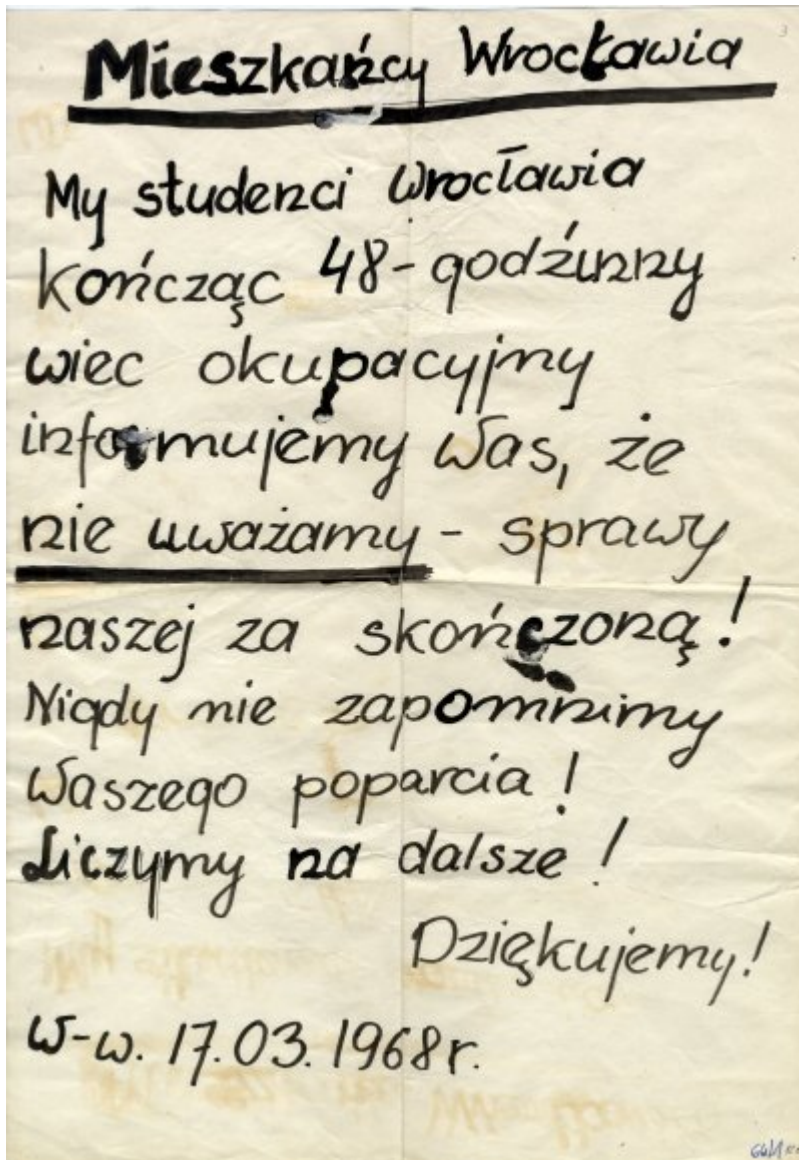 3
Mieszkańcy Wrocławia
My studenci Wrocławia
kończąc 48-godźinny
wiec okupacyjny
informujemy Was, że
nie uważamy - sprawy
naszej za skończoną!
Nigdy nie zapomnimy
Waszego poparcia!
Liczymy na dalsze!
Dziękujemy!
W-w. 17.03.1968r.